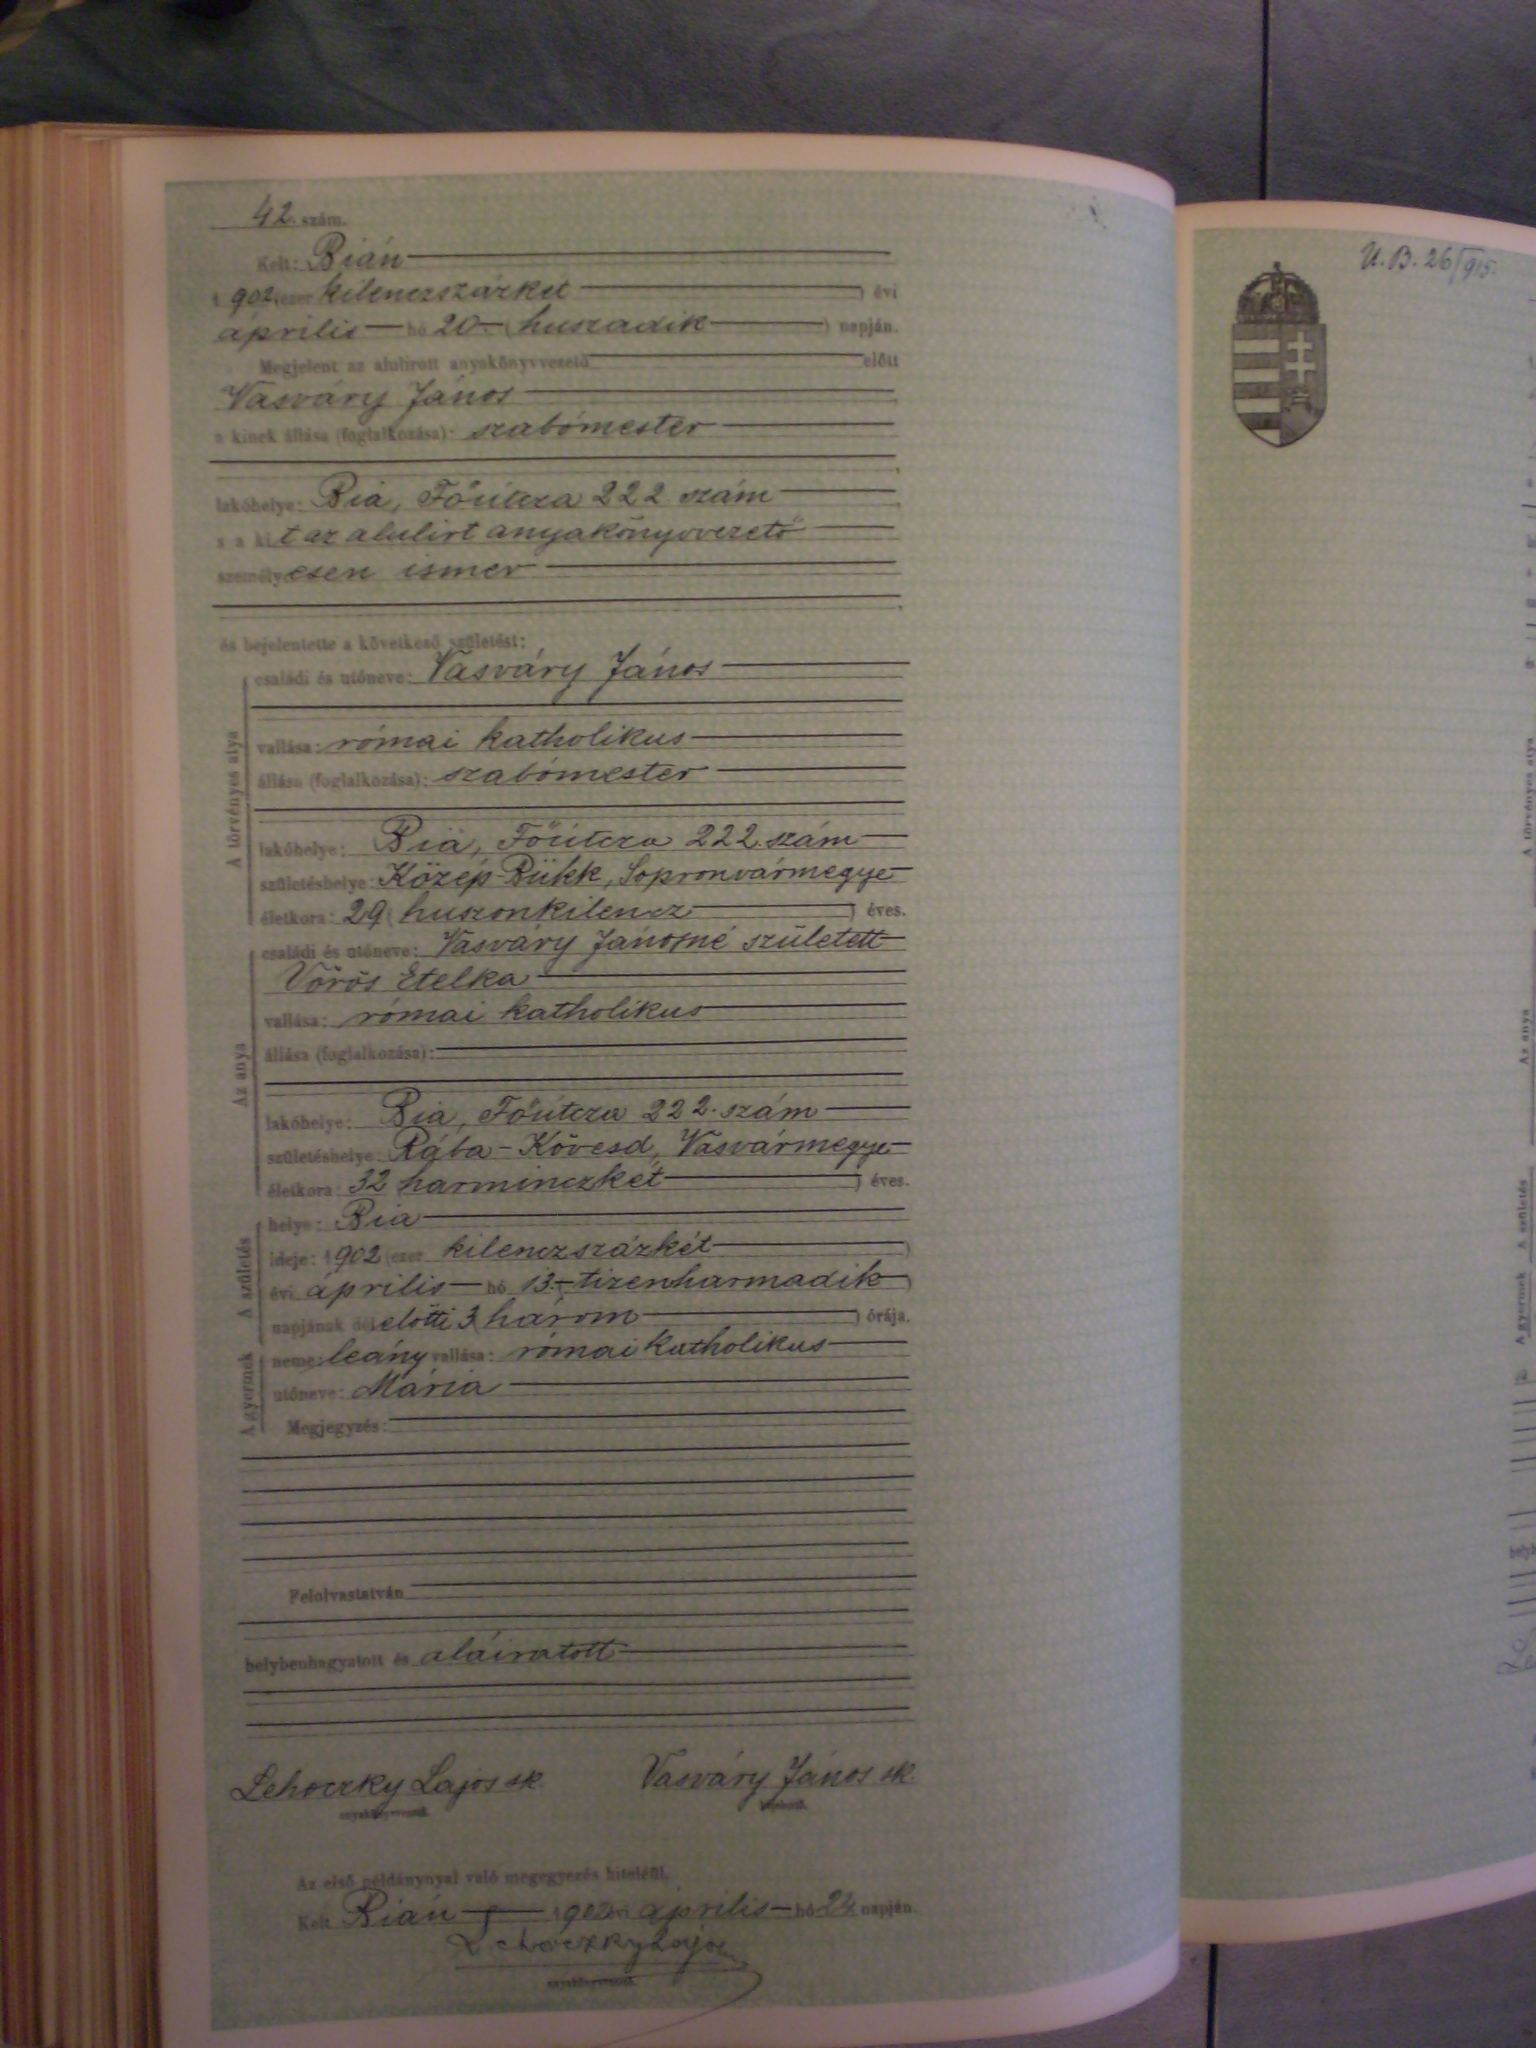 42. szám.
Kelt: Bián
1902 (ezer kilenczszázkét ) évi
április hó 20. ( huszadik ) napján.
Megjelent az alulirott anyakönyvvezető előtt
Vasváry János
a kinek állása (foglalkozása): szabómester
lakóhelye: Bia, Főútcza 222 szám
s a kit az alulirt anyakönyvvezető
személyesen ismer
és bejelentette a következő születést:
A törvényes atya
családi és utóneve: Vasváry János
vallása: római katholikus
állása (foglalkozása): szabómester
lakóhelye: Bia, Főútcza 222. szám
születéshelye: Közép-Bükk, Sopronvármegye
életkora: 29 ( huszonkilencz ) éves.
Az anya
családi és utóneve: Vasváry Jánosné született
Vörös Etelka
vallása: római katholikus
állása (foglalkozása):
lakóhelye: Bia, Főútcza 222. szám
születéshelye: Rába-Kövesd, Vasvármegye
életkora: 32 harminczkét ) éves.
A születés
helye: Bia
ideje: 1902 (ezer kilenczszázkét )
évi április hó 13. tizenharmadik )
napjának délelőtti 3 ( három ) órája.
A gyermek
neme: leány vallása: római katholikus
utóneve: Mária
Megjegyzés:
Felolvastatván
helybenhagyatott és aláiratott
Lehoczky Lajos sk. Vasváry János sk.
anyakönyvvezető. bejelentő.
Az első példánynyal való megegyezés hiteléül.
Kelt Bián 1902 évi április hó 24 napján.
Lehoczky Lajos
anyakönyvvezető.
U. B. 26/915.
A törvényes atya
Az anya
A születés
A gyermek